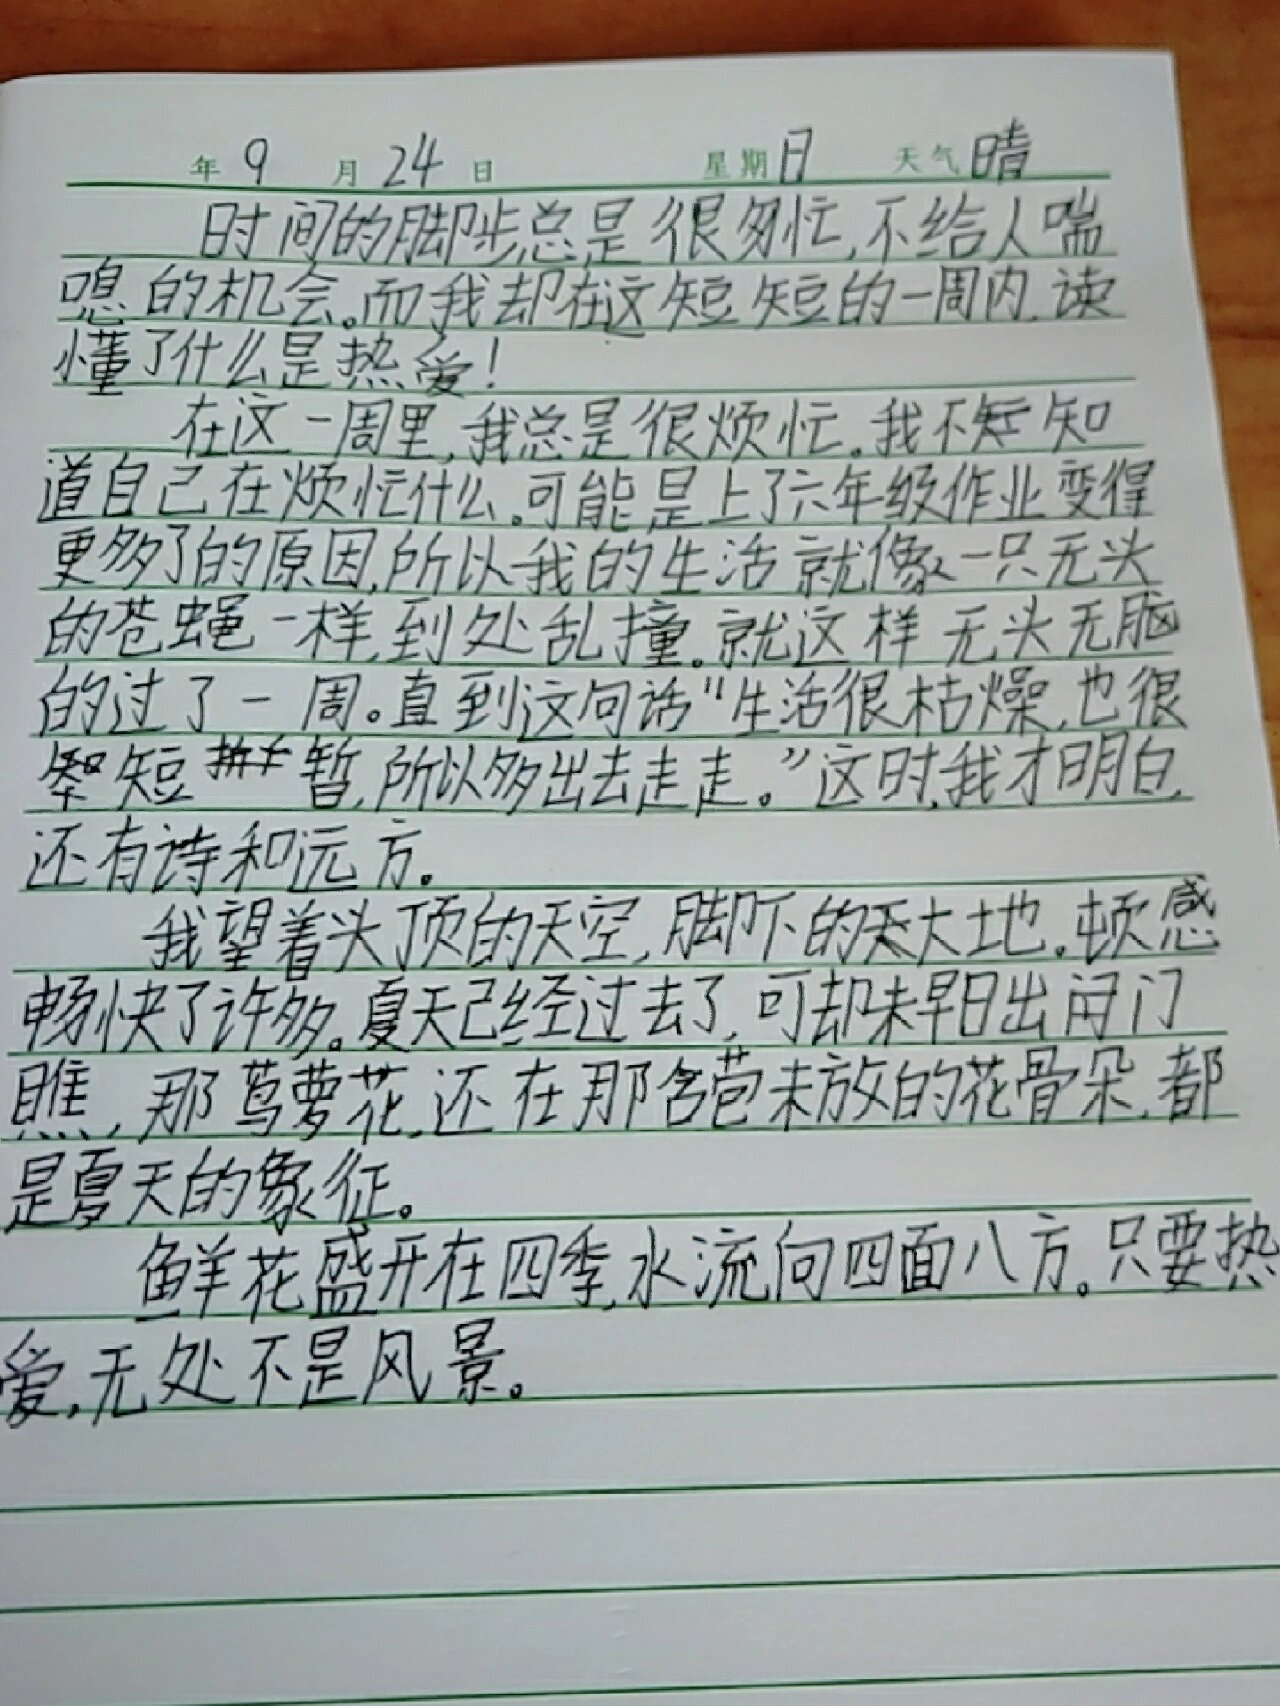 年 9 月 24 日 星期日 天气 晴
时间的脚步总是很匆忙,不给人喘
息的机会。而我却在这短短的一周内,读
懂了什么是热爱！
在这一周里,我总是很烦忙。我不知
道自己在烦忙什么。可能是上了六年级作业变得
更多了的原因,所以我的生活就像一只无头
的苍蝇一样,到处乱撞。就这样无头无脑
的过了一周。直到这句话“生活很枯燥,也很
短暂,所以多出去走走。”这时,我才明白,
还有诗和远方。
我望着头顶的天空,脚下的大地。顿感
畅快了许多。夏天己经过去了,可却未早日出门
瞧,那茑萝花,还在那含苞未放的花骨朵,都
是夏天的象征。
鲜花盛开在四季,水流向四面八方。只要热
爱,无处不是风景。